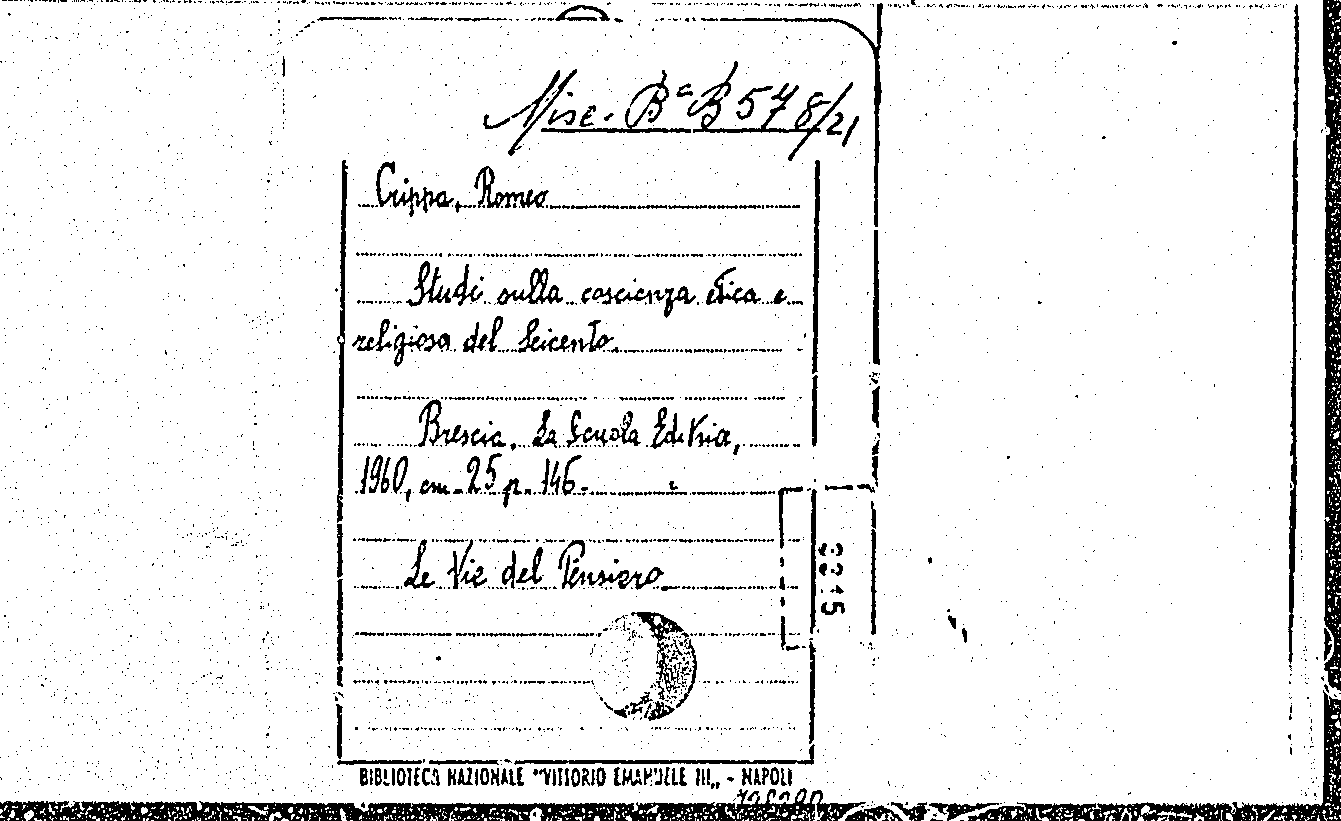 Misc. Bª B 578/21
Crippa, Romeo
Studi sulla coscienza etica e
religiosa del Seicento.
Brescia, La Scuola Editrice,
1960, cm. 25 p. 146.
Le Vie del Pensiero
2215
BIBLIOTECA NAZIONALE "VITTORIO EMANUELE III„ - NAPOLI